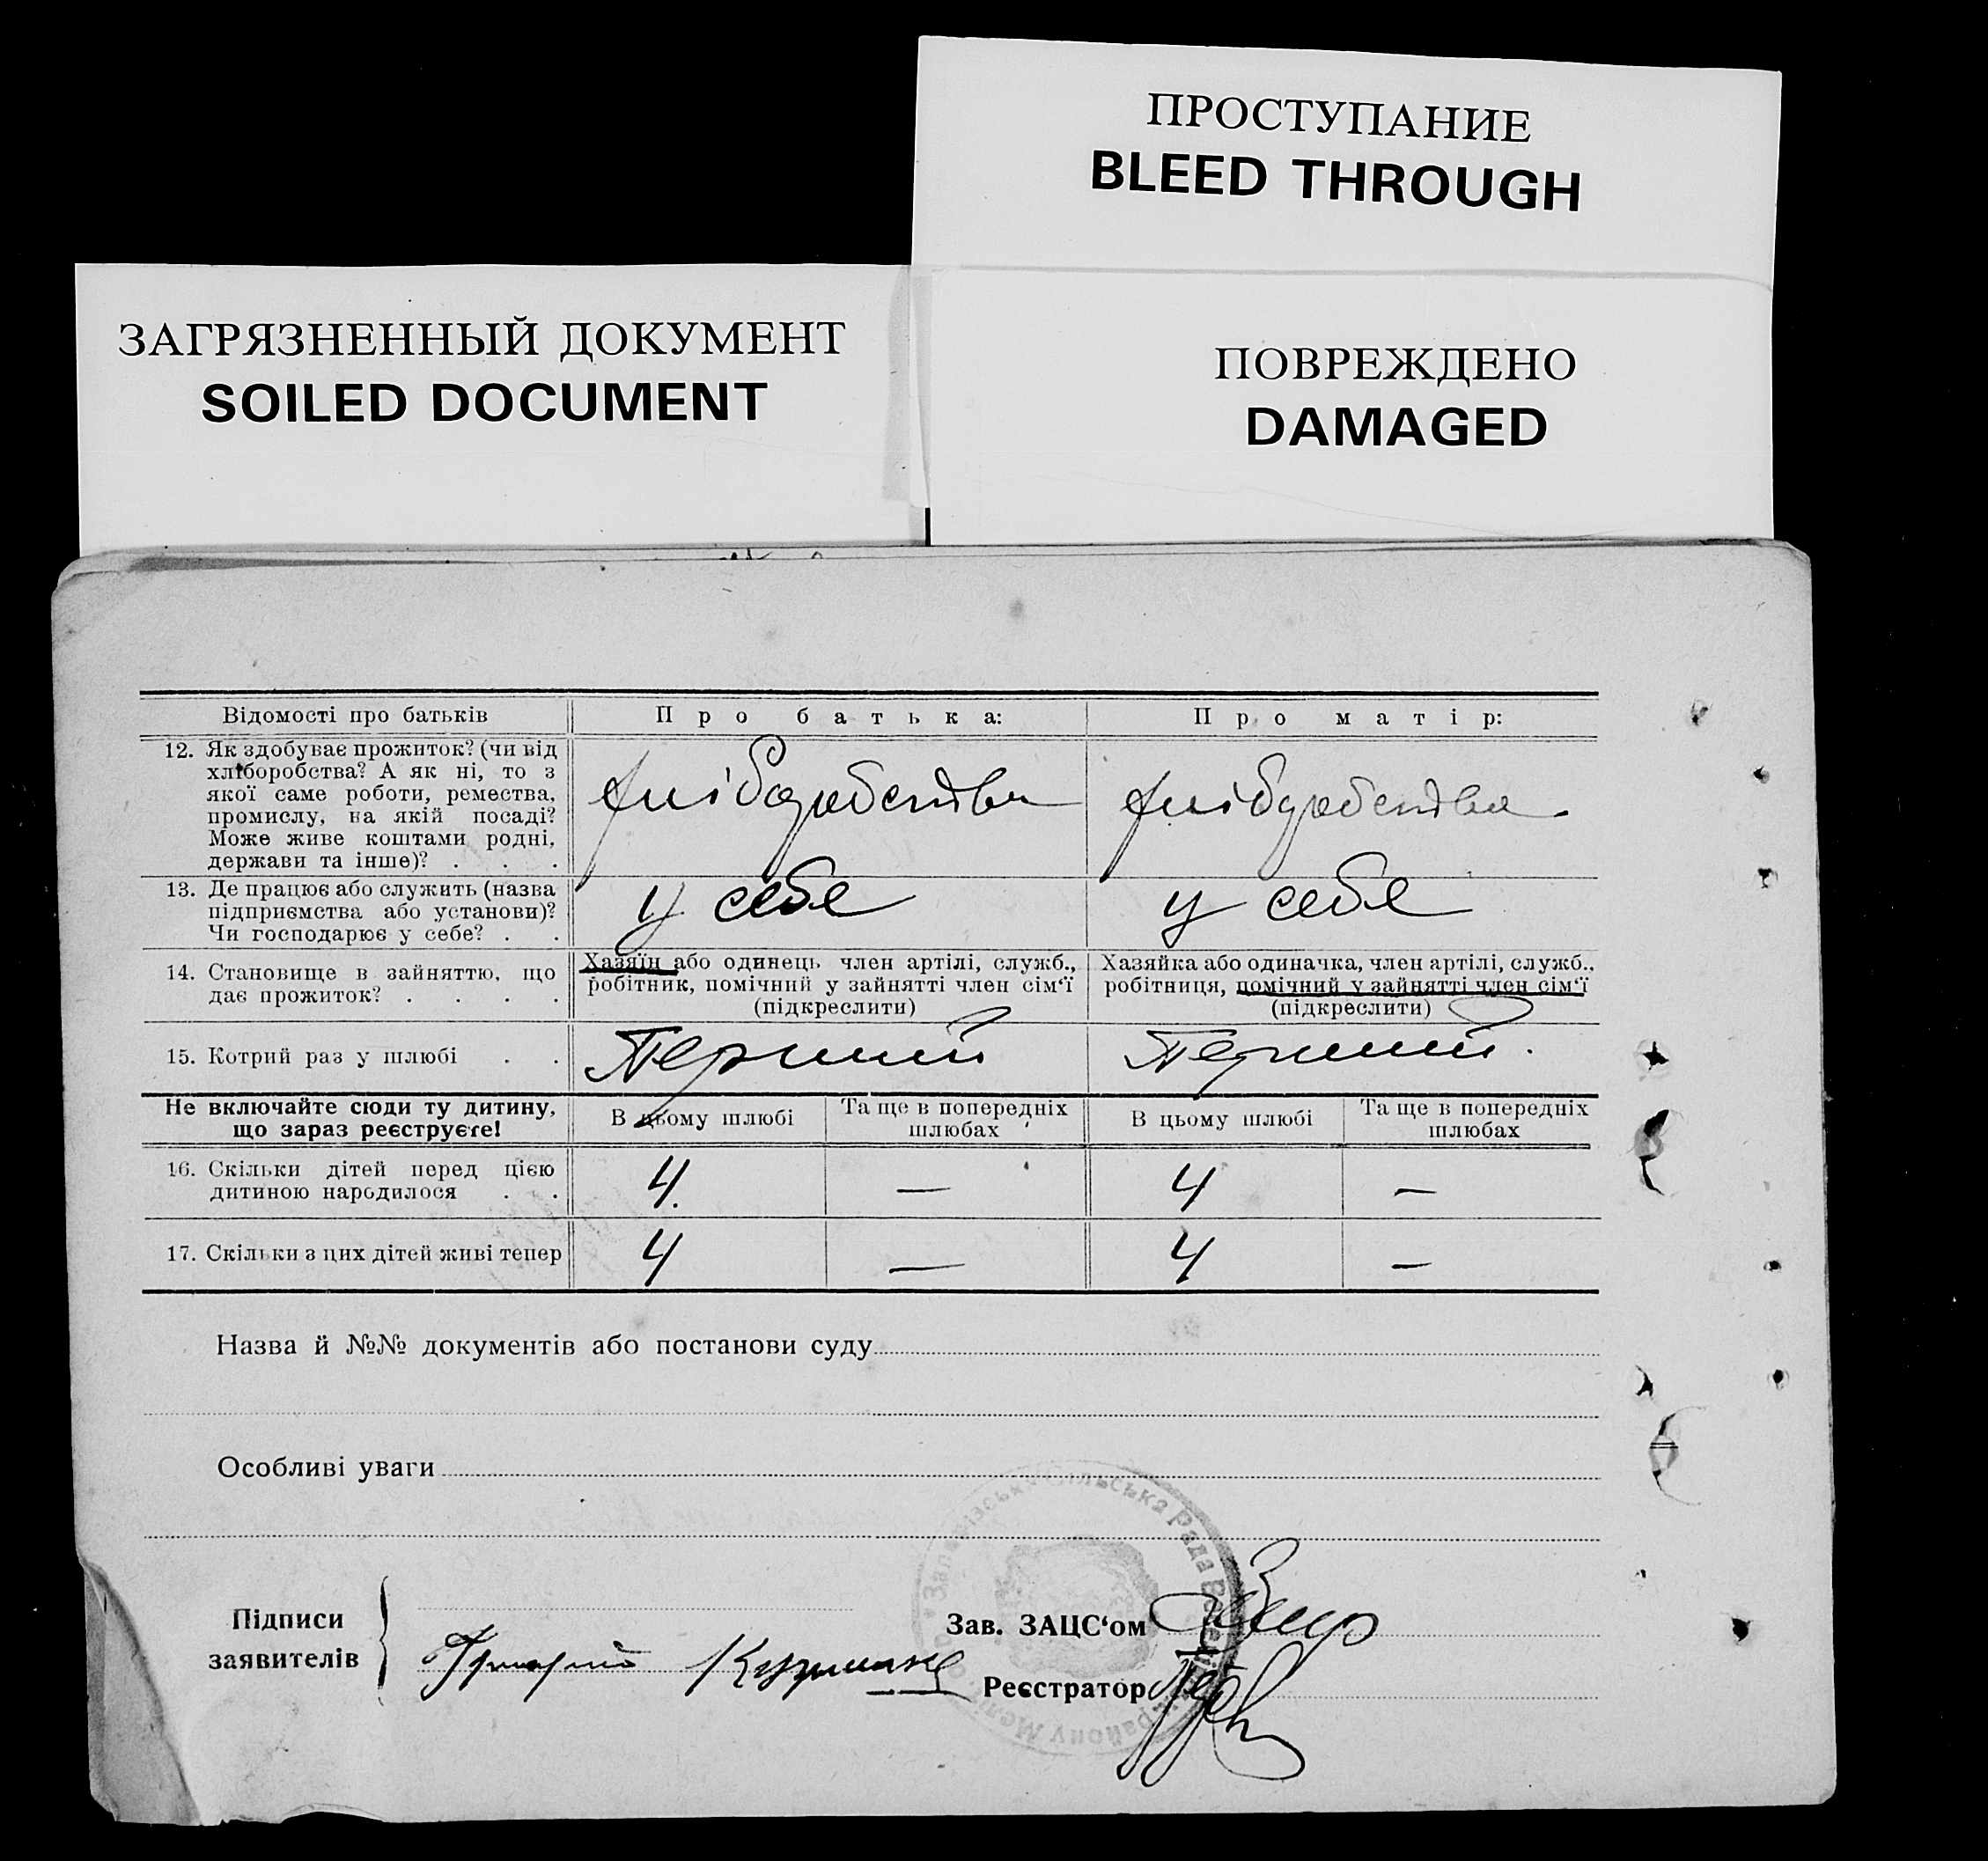 ПРОСТУПАНИЕ
BLEED THROUGH
ЗАГРЯЗНЕННЫЙ ДОКУМЕНТ
SOILED DOCUMENT
ПОВРЕЖДЕНО
DAMAGED
Відомості про батьків
Про батька:
Про матір:
12. Як здобуває прожиток? (чи від
хліборобства? А як ні, то з
якої саме роботи, ремества,
промислу, на якій посаді?
Може живе коштами родні,
держави та інше)? . . .
хліборобства
хліборобства
13. Де працює або служить (назва
підприємства або установи)?
Чи господарює у себе? . .
у себе
у себе
14. Становище в зайняттю, що
дає прожиток? . . . .
Хазяїн або одинець член артілі, служб.,
робітник, помічний у зайнятті член сім'ї
(підкреслити)
Хазяйка або одиначка, член артілі, служб.,
робітниця, помічний у зайнятті член сім'ї
(підкреслити)
15. Котрий раз у шлюбі . .
Перший
Перший.
Не включайте сюди ту дитину,
що зараз реєструєте!
В цьому шлюбі
Та ще в попередніх
шлюбах
В цьому шлюбі
Та ще в попередніх
шлюбах
16. Скільки дітей перед цією
дитиною народилося . .
4.
—
4
—
17. Скільки з цих дітей живі тепер
4
—
4
—
Назва й №№ документів або постанови суду
Особливі уваги
Сільська Рада
району
Підписи
заявителів
Зав. ЗАЦС'ом
Реєстратор